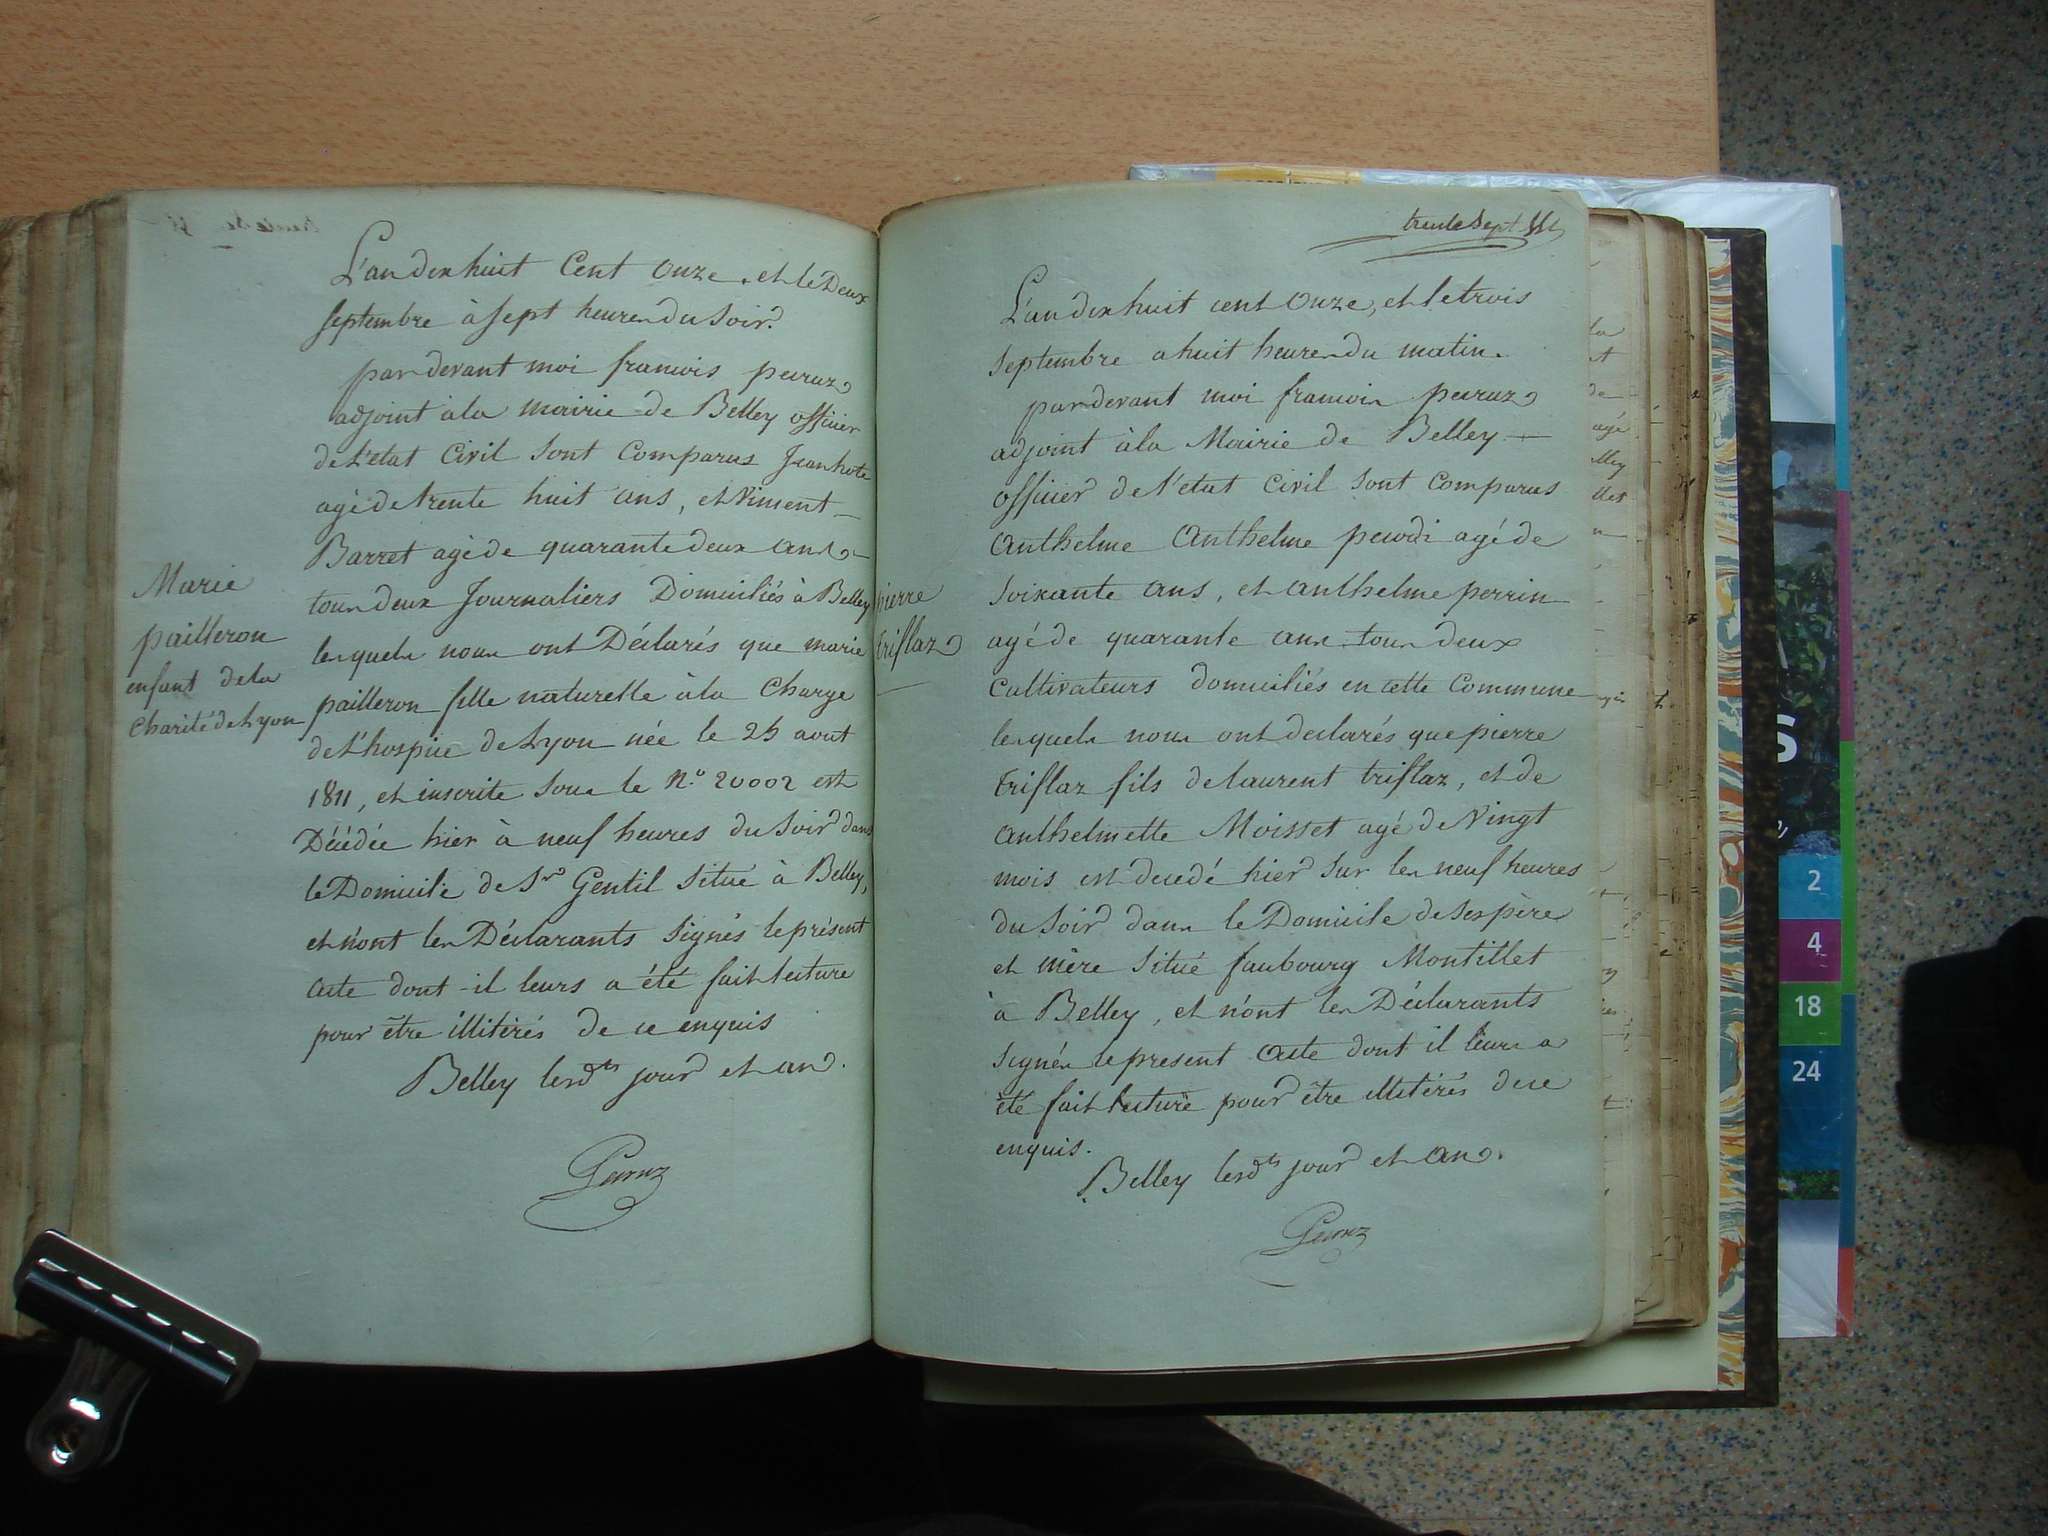 L'an dix huit Cent onze, et le Deux
septembre à sept heures du soir.
par devant moi francois peuruz
adjoint à la mairie de Belley officier
de l'etat Civil sont Comparus Jean hote
agé de trente huit ans, et Vincent
Barret agé de quarante deux ans
tous deux Journaliers Domiciliés à Belley
lesquels nous ont Déclarés que marie
pailleron fille naturelle à la Charge
de l'hospice de Lyon née le 25 aout
1811, et inscrite sous le N.º 20002 est
Décédée hier à neuf heures du soir dans
le Domicile de Sr Gentil situé à Belley,
et n'ont les Déclarants signés le présent
acte dont il leurs a été fait lecture
pour être illitérés de ce enquis
Belley lesdts jour et an.
Marie
pailleron
enfant de la
Charité de Lyon
trente sept
L'an dix huit cent onze, et le trois
septembre a huit heures du matin.
par devant moi francois peuruz
adjoint à la Mairie de Belley
officier de l'etat Civil sont Comparus
Anthelme Anthelme agé de
soixante ans, et anthelme perrin
agé de quarante ans tous deux
Cultivateurs domiciliés en cette Commune
lesquels nous ont declarés que pierre
triflaz fils de laurent triflaz, et de
anthelmette Moisset agé de Vingt
mois est decedé hier sur les neuf heures
du soir dans le Domicile de ses père
et mère situé faubourg Montillet
à Belley, et n'ont les Déclarants
signés le present acte dont il leurs a
été fait lecture pour être illitérés de ce
enquis.
Belley lesdts jour et an.
pierre
triflaz
2
4
18
24